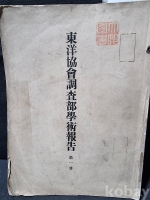 東洋協會調査部學術報告
第一册
kobay